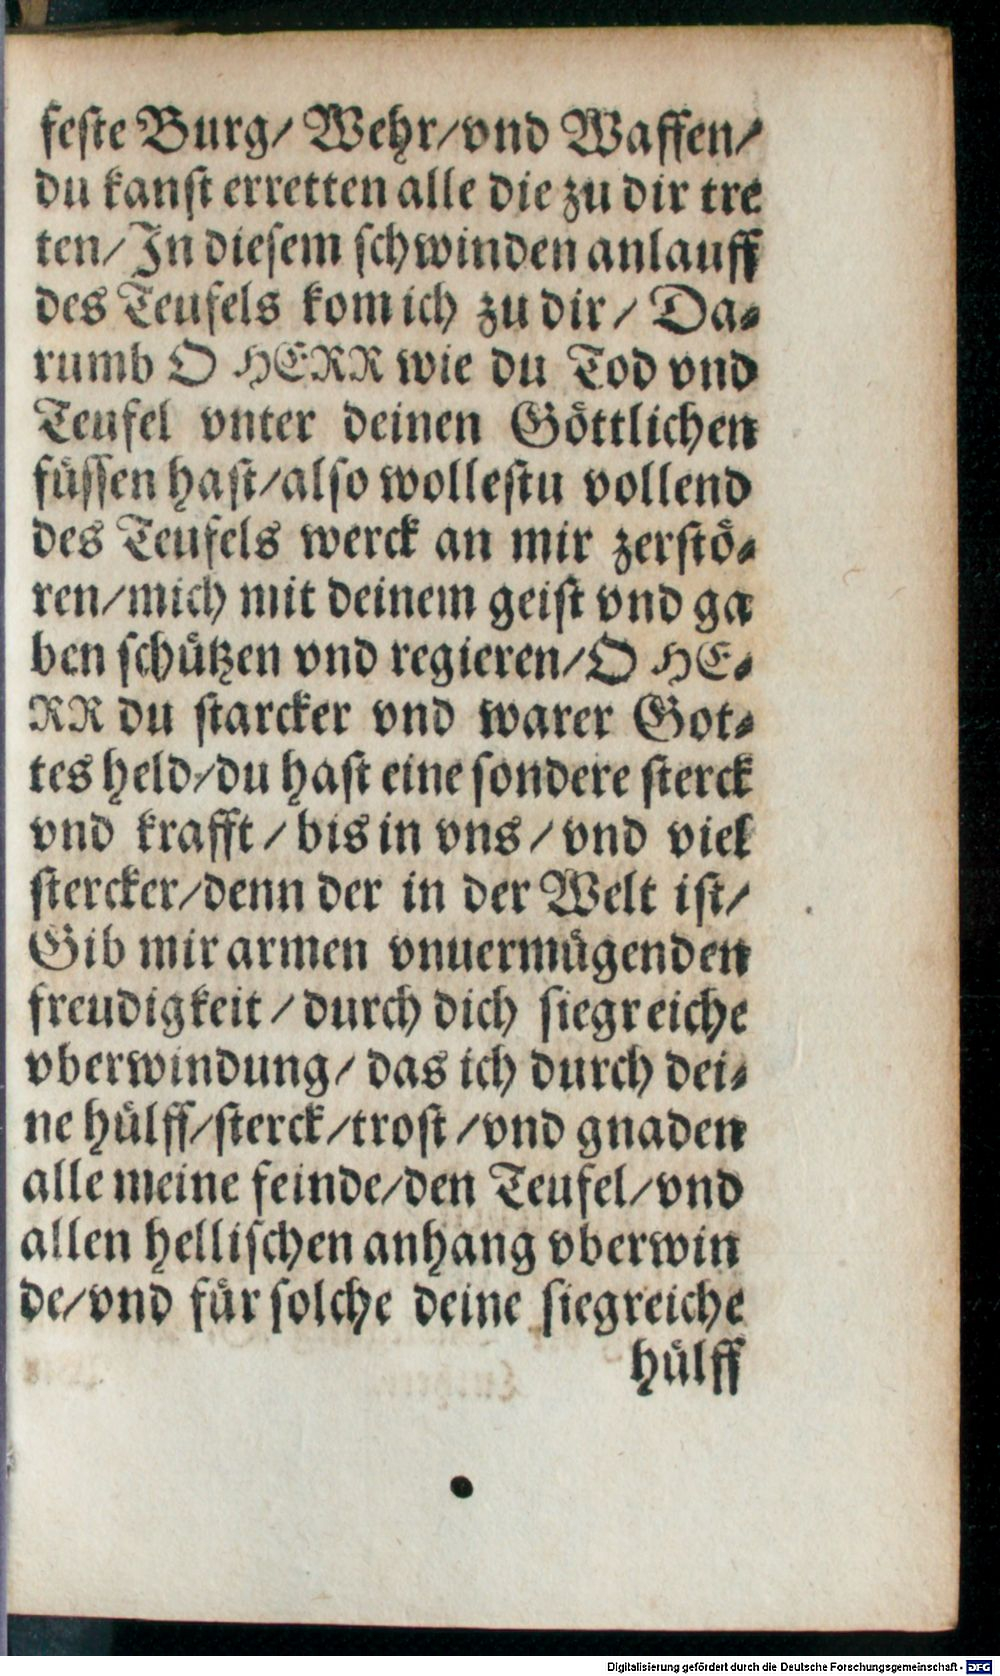 feste Burg/ Wehr/vnd Waffen/
du kanst erretten alle die zu dir tre
ten/In diesem schwinden anlauff
des Teufels kom ich zu dir/ Da-
rumb O HERR wie du Tod vnd
Teufel vnter deinen Göttlichen
füssen hast/also wollestu vollend
des Teufels werck an mir zerstö-
ren/mich mit deinem geist vnd ga
ben schützen vnd regieren/O HE-
RR du starcker vnd warer Got-
tes held/du hast eine sondere sterck
vnd krafft/bis in vns/vnd viel
stercker/denn der in der Welt ist/
Gib mir armen vnuermügenden
freudigkeit/durch dich siegreiche
vberwindung/ das ich durch dei-
ne hülff/sterck/trost/vnd gnaden
alle meine feinde/den Teufel/vnd
allen hellischen anhang vberwin
de/vnd für solche deine siegreiche
hülff
Digitalisierung gefördert durch die Deutsche Forschungsgemeinschaft - DFG